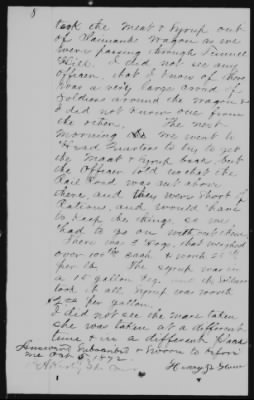 8
took the Meat & Syrup out
of Wagon as we
were passing through Tunnel
Hill. I did not see any
Officer, that I know of there
was a very large crowd of
Soldiers around the wagon &
I did not know one from
the other. The next
morning we went to
Head Quarters to try to get
the Meat & Syrup back, but
the Officer told us that the
Rail Road was cut above
there, and they were short of
Rations, and would have
to keep the things, so we
had to go on without them.
There was 5 Hogs, that weighed
over 100 lbs each & worth
per lb. The Syrup was in
a 45 gallon Keg and the Soldiers
took it all Syrup was worth
per gallon.
I did not see the Mare taken
she was taken at a different
time & in a different place
Answered Subscribed & Sworn to before
me Oct 5 1872
Henry